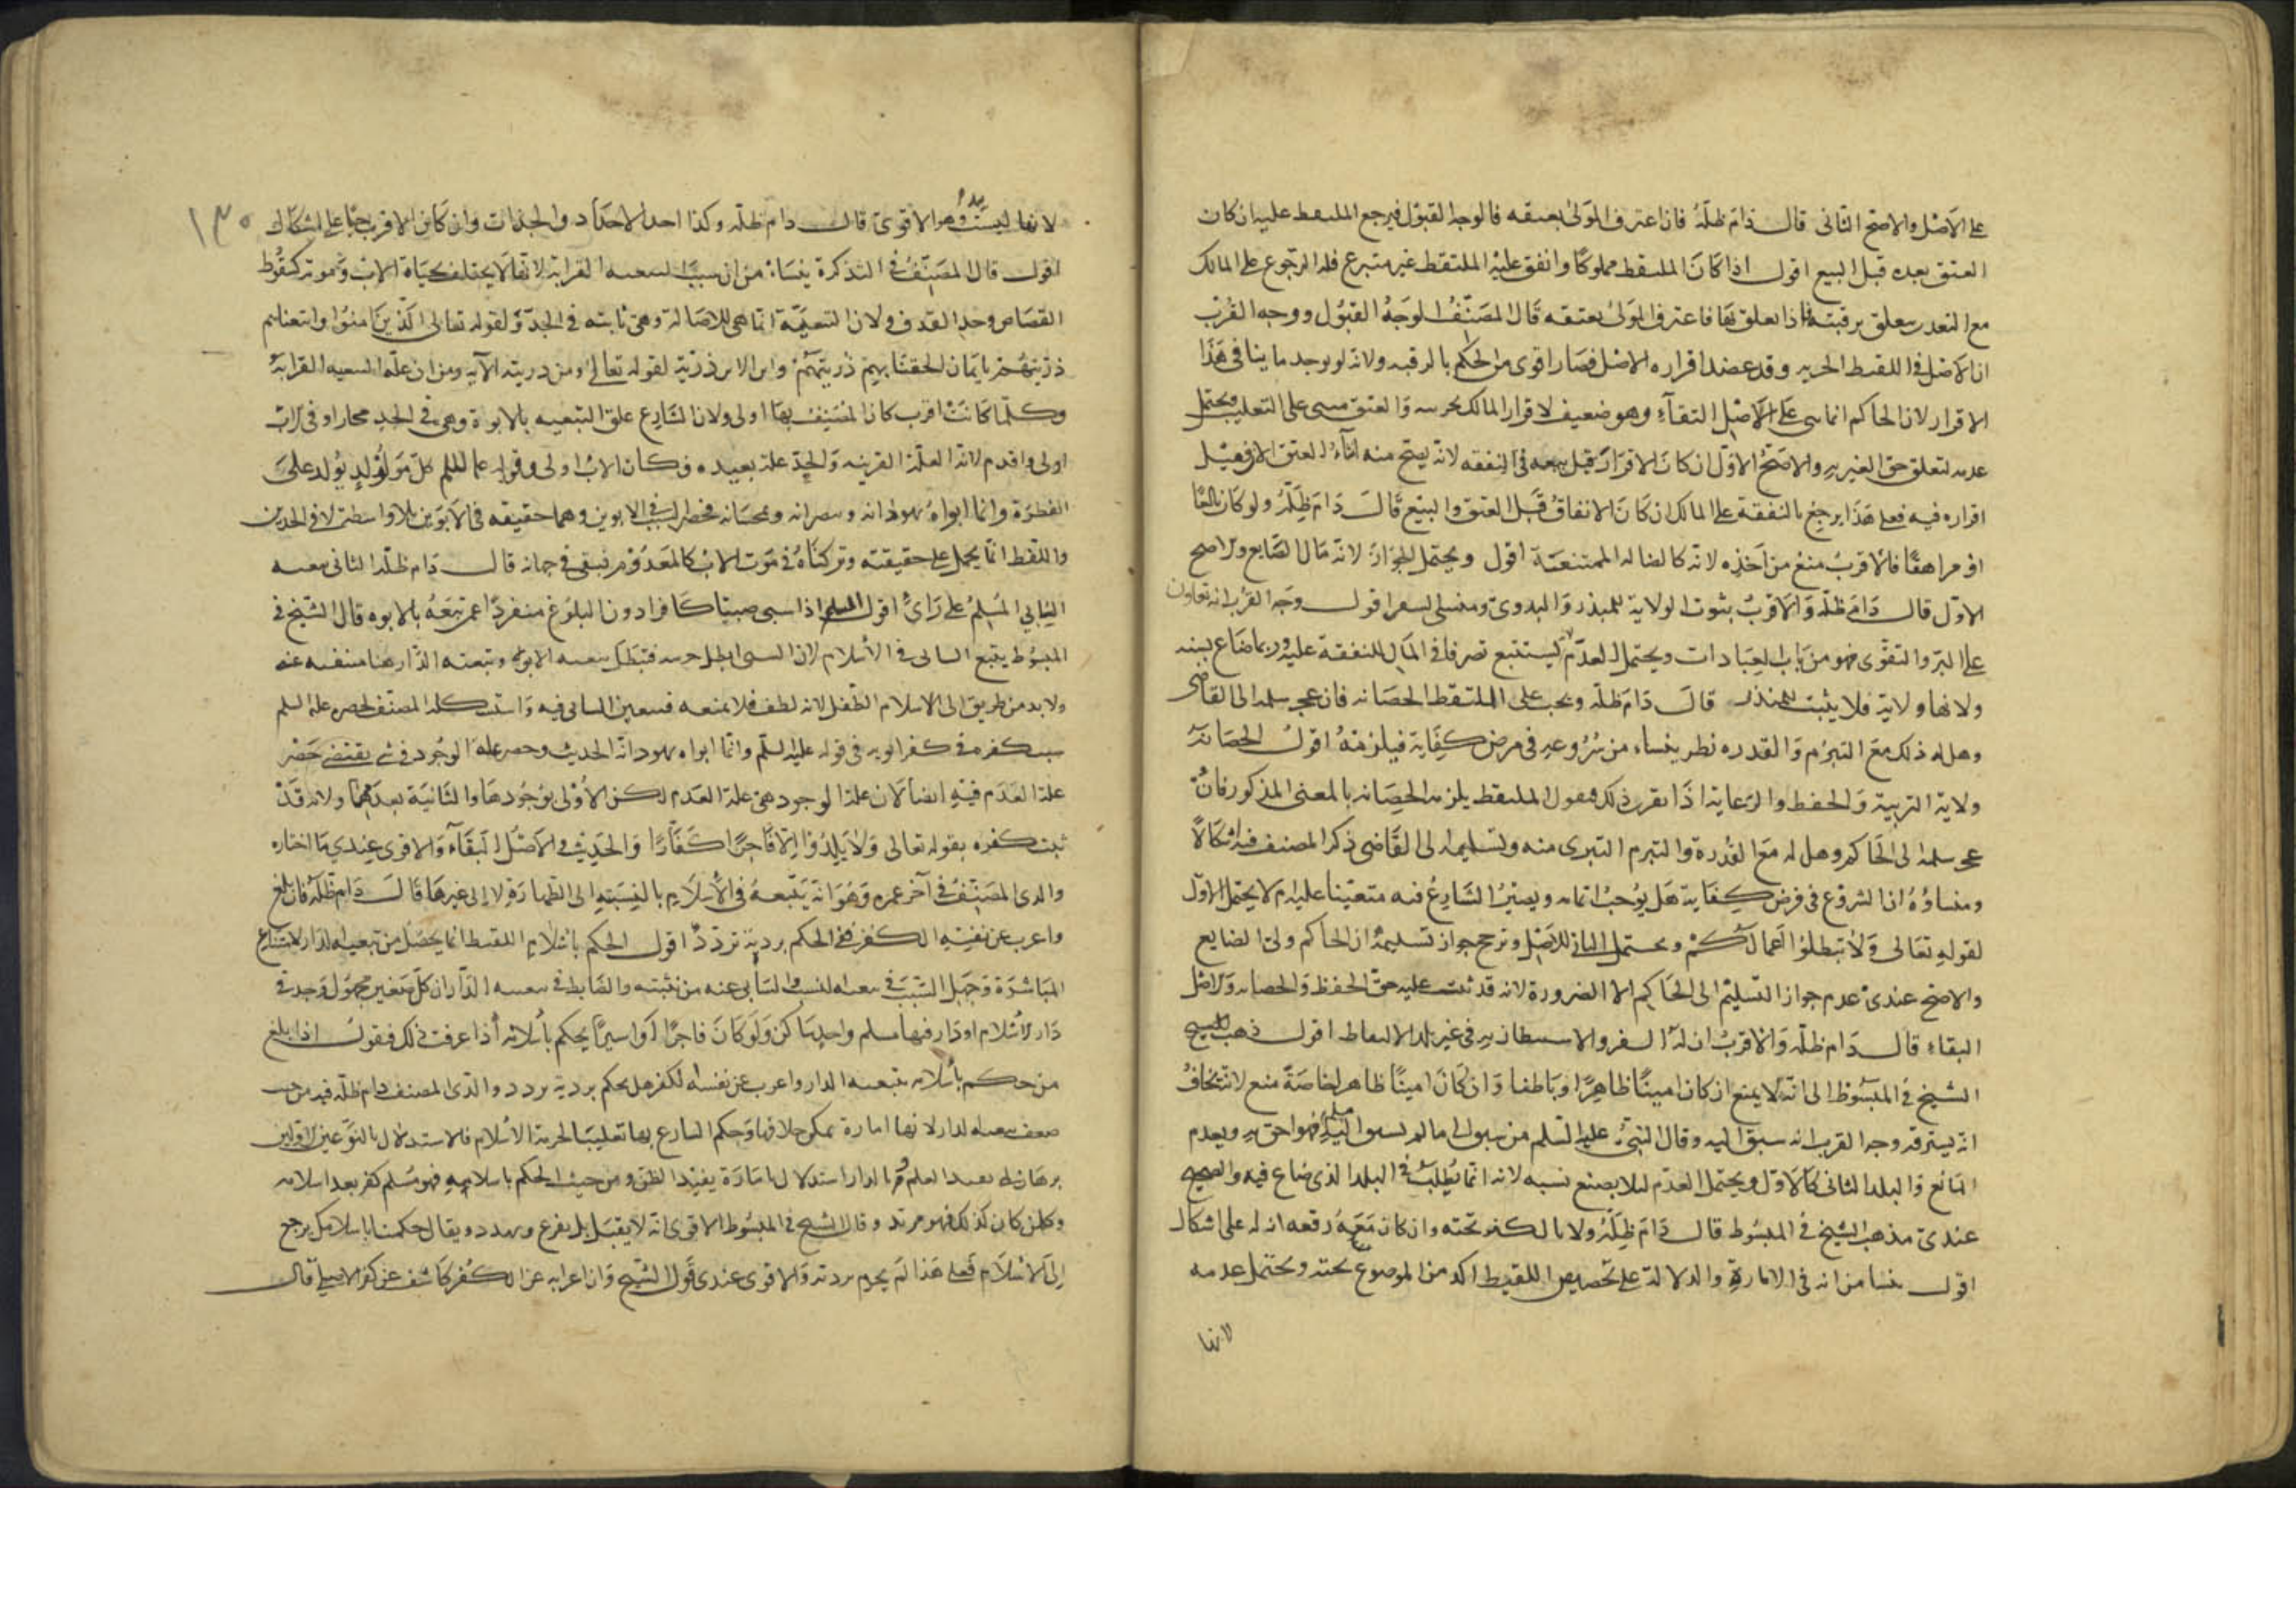 على الأصل والاصح الثاني قال دام ظلّه فان اعترف المولى بعتقه فالوجه القبول فيرجع الملتقط عليه ان كان
العتق بعده قبل البيع اقول اذا كان الملتقط مملوكا وانفق عليه الملتقط غير متبرع فله الرجوع على المالك
مع التعذر يتعلق برقبته فاذا تعلق بها فاعترف المولى بعتقه قال المصنف الوجه القبول ووجه القرب
ان الاصل في اللقيط الحرية وقد عضد اقراره الاصل فصار اقوى من الحكم بالرقية ولانه لم يوجد ما ينافي هذا
الاقرار لان الحاكم انما بنى على الاصل التقاء وهو ضعيف لاقرار المالك بحريته والعتق مبني على التغليب ويحتمل
عدمه لتعلق حق الغير به والاصح الاول ان كان الاقرار قبل بيعه في النفقة لانه يصح منه انشاء العتق الان فيقبل
اقراره فيه فعلى هذا يرجع بالنفقة على المالك ان كان الانفاق قبل العتق والبيع قال دام ظلّه ولو كان بالغا
او مراهقا فالاقرب منع من اخذه لانه كالضالة الممتنعة اقول ويحتمل الجواز لانه مال ضايع والاصح
الاول قال دام ظلّه والاقرب ثبوت الولاية للمبذر والبدوي ومنشئ السفر اقول وجه القرب انه تعاون
على البر والتقوى فهو من باب العبادات ويحتمل العدم ليستتبع تصرفا في المال للنفقة عليه وربما ضاع بينه
ولانها ولاية فلا يثبت للمبذر قال دام ظلّه ويجب على الملتقط الحضانة فان عجز سلمه الى القاضي
وهل له ذلك مع التبرم والقدرة نظر ينشاء من شروعه في فرض كفاية فيلزمه اقول الحضانة
ولاية التربية والحفظ والرعاية اذا تقرر ذلك فنقول الملتقط يلزمه الحضانة بالمعنى المذكور فان
عجز سلمه الى الحاكم وهل له مع القدرة والتبرم التبري منه وتسليمه الى القاضي ذكر المصنف فيه اشكالا
ومنشاؤه ان الشروع في فرض كفاية هل يوجب اتمامه ويصير الشارع فيه متعينا عليه ام لا يحتمل الاول
لقوله تعالى ولا تبطلوا اعمالكم ويحتمل الثاني للاصل ونرجح جواز تسليمه ان الحاكم ولي الضايع
والاصح عندي عدم جواز التسليم الى الحاكم الا الضرورة لانه قد ثبت عليه حق الحفظ والحضانة والاصل
البقاء قال دام ظلّه والاقرب ان له السفر والاستيطان به في غير بلد الالتقاط اقول ذهب الشيخ
الشيخ في المبسوط الى انه لا يمنع ان كان امينا ظاهرا وباطنا وان كان امينا ظاهرا خاصة منع لانه يخاف
انه يسترقه وجه القرب انه سبق اليه وقال النبي عليه السلم من سبق الى ما لم يسبق اليه مسلم فهو احق به ويعدم
المانع والبلد الثاني كالاول ويحتمل العدم لئلا يضيع نسبه لانه انما يطلب في البلد الذي ضاع فيه والصحيح
عندي مذهب الشيخ في المبسوط قال دام ظلّه ولا بالكنز تحته وان كان معه رقعه انه له على اشكال
اقول ينشا من انه في الامارة والدلالة على تخصيص اللقيط اكد من الموضوع تحته ويحتمل عدمه
لانها
١٣٠
لانها ليست يد وهو الاقوى قال دام ظلّه وكذا احد الاجداد والجدات وان كان الاقرب حيا على اشكال
اقول قال المصنف في التذكرة ينشاء من ان سبب التبعيه القرابة لانها لا يختلف بحياة الاب وموته كسقوط
القصاص وحد القذف ولان التبعية انما هي للاصالة وهي ثابته في الجد ولقوله تعالى الذين امنوا واتبعناهم
ذريتهم بايمان الحقنا بهم ذريتهم وابن الابن ذرية لقوله تعالى ومن ذريته الآية ومن ان علة التبعيه القرابة
وكلما كانت اقرب كان المتصف بها اولى ولان الشارع علق التبعيه بالابوة وهي في الجد مجاز او في الاب
اولى واقدم لانه العلة القريبه والجد علة بعيده فكان الاب اولى وقوله عليه السلم كل مولود يولد على
الفطرة وانما ابواه يهودانه وينصرانه ويمجسانه فحصر السبب في الابوين وهما حقيقه في الابوين بلا واسطة لا في الجدين
واللفظ انما يحمل على حقيقته وتركناه في موت الاب كالمعدوم فبقي في حياته قال دام ظلّه الثاني تبعيه
السابي المسلم على رأي اقول المسلم اذا سبى صبيا كافرا دون البلوغ منفردا عمن تبعه بالابوه قال الشيخ في
المبسوط يتبع السابي في الأسلام لان السبي ابطل حريته فتبطل تبعيه الابوة وتبعية الدار هنا منفيه عنه
ولا بد من طريق الى الاسلام الطفل لانه لطف فلا يمنعه فتعين السابي فيه واستشكله المصنف لحصره عليه السلم
سبب كفره في كفر ابويه في قوله عليه السلم وانما ابواه يهودانه الحديث وحصر علة الوجود في شي يقتضي حصر
علة العدم فيه ايضا لان علة الوجود هي علة العدم لكن الأولى بوجودها والثانية بعدمها ولانه قد
ثبت كفره بقوله تعالى ولا يلدوا الا فاجرا كفارا والحديث في الاصل البقاء والاقوى عندي ما اختاره
والدي المصنف في آخر عمره وهو انه يتبعه في الأسلام بالنسبة الى الطهارة لا الى غيرها قال دام ظلّه فان بلغ
واعرب عن نفسه الكفر ففي الحكم بردته تردد اقول الحكم باسلام اللقيط انما يحصل من تبعيه الدار لامتناع
المباشرة وجهل النسب في تبعية النسب والسابي عنه من نفيته والضابط في تبعيه الدار ان كل صغير مجهول وجد في
دار الأسلام او دار فيها مسلم واحد ساكن ولو كان فاجرا او اسيرا يحكم بأسلامه اذا عرفت ذلك فنقول اذا بلغ
من حكم بأسلامه بتبعيه الدار واعرب عن نفسه الكفر هل يحكم بردته تردد والدي المصنف دام ظلّه فيه من حيث
ضعف تبعيه الدار لانها امارة يمكن خلافها وحكم الشارع بها تغليبا لحرمة الأسلام فالاستدلال بالنوعين الاولين
برهان له يفيد العلم وبالدار استدلال امارة يفيد الظن ومن حيث الحكم باسلامه فهو مسلم كفر بعد اسلامه
وكل من كان كذلك فهو مرتد وقال الشيخ في المبسوط الاقوى انه لا يقتل بل يفزع ويهدد ويقال حكمنا باسلامك يرجع
الى الاسلام فعلى هذا لم يجزم بردته والاقوى عندي قول الشيخ وان اعرابه عن الكفر كاشف عن كفره الاصلي قال